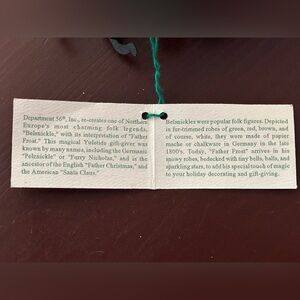 Department 56®, Inc., re-creates one of Northern
Europe's most charming folk legends,
"Belznickle," with its interpretation of "Father
Frost." This magical Yuletide gift-giver was
known by many names, including the Germanic
"Pelznickle" or "Furry Nicholas," and is the
ancestor of the English "Father Christmas," and
the American "Santa Claus."
Belsnickles were popular folk figures. Depicted
in fur-trimmed robes of green, red, brown, and
of course, white, they were made of papier
mache or chalkware in Germany in the late
1800's. Today, "Father Frost" arrives in his
snowy robes, bedecked with tiny bells, balls, and
sparkling stars, to add his special touch of magic
to your holiday decorating and gift-giving.